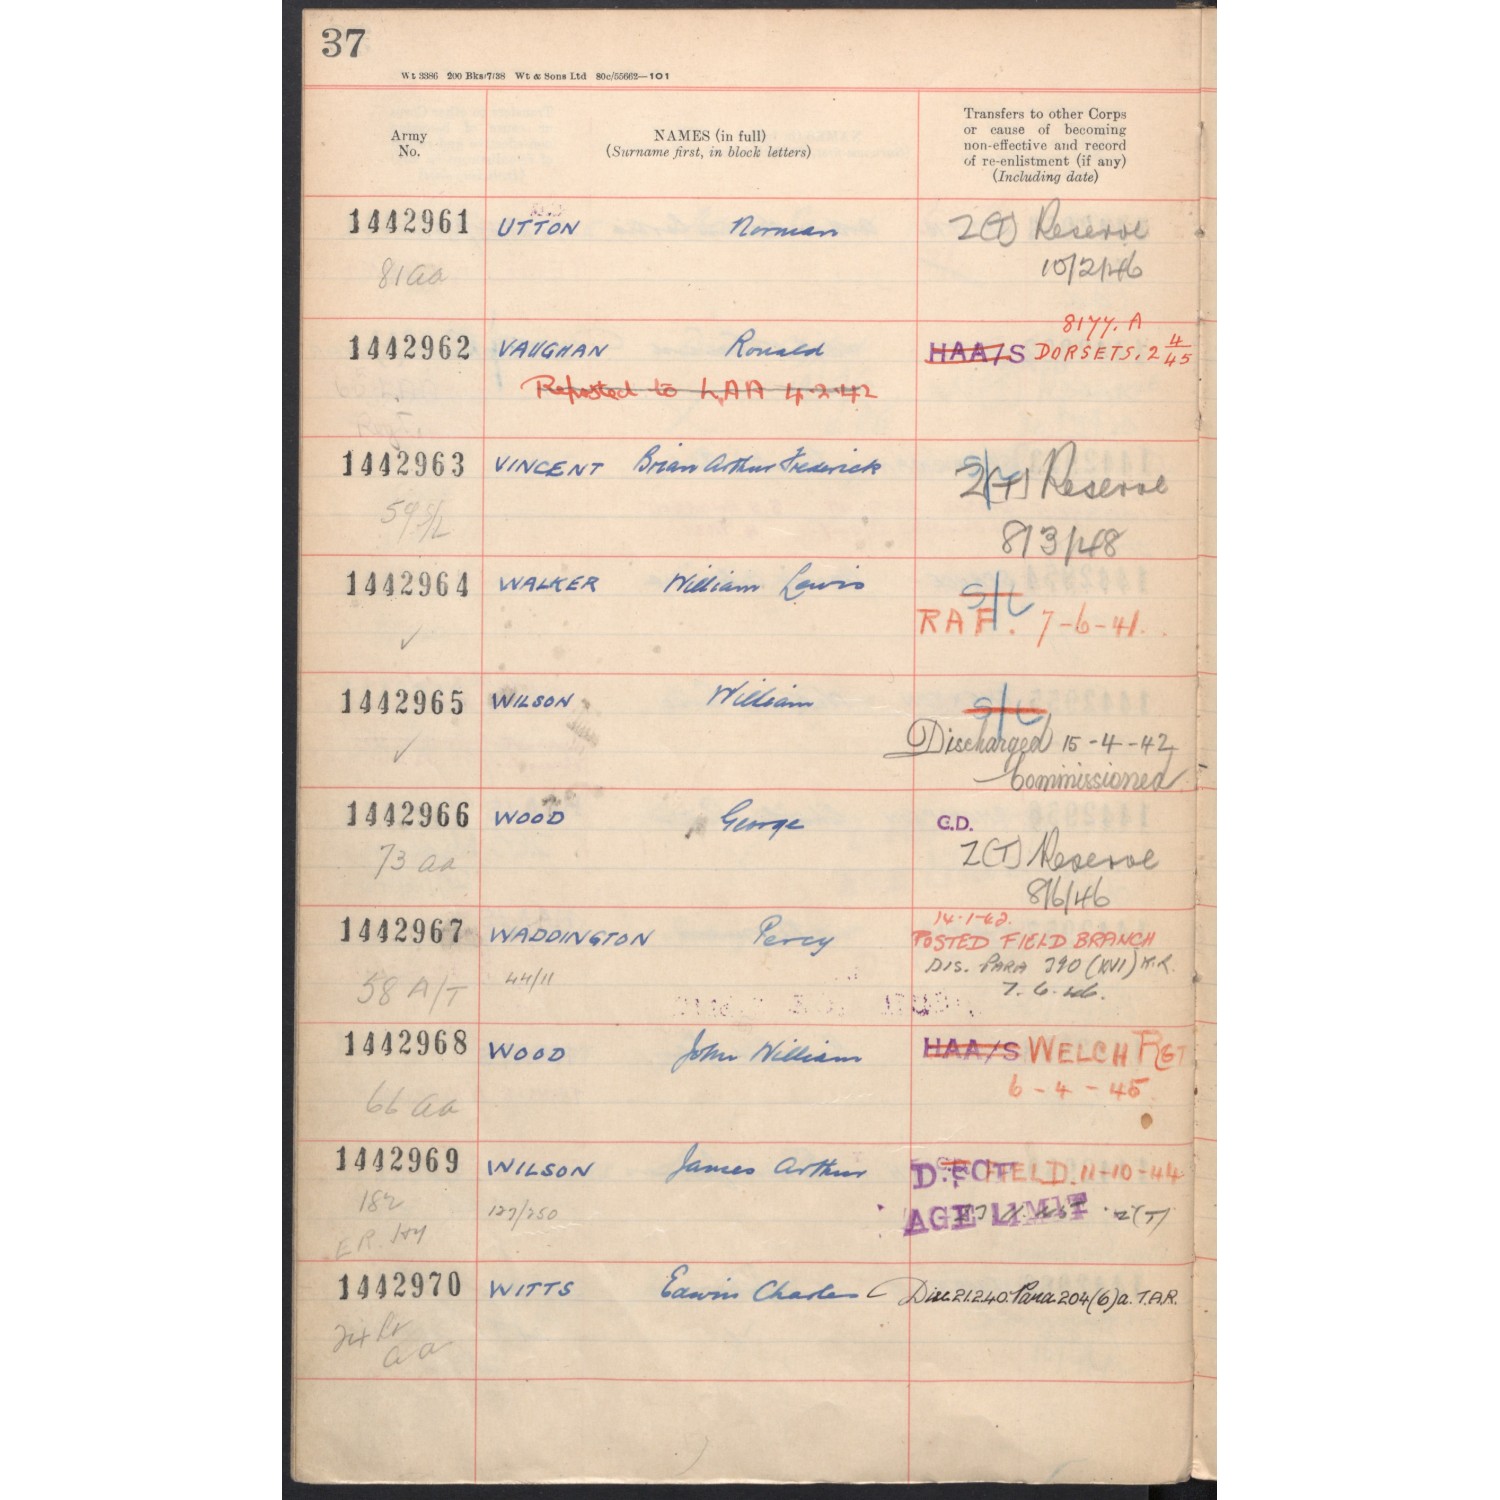 37
Wt 3386 200 Bks/7/38 Wt & Sons Ltd 80c/55662—101
Army
No.
NAMES (in full)
(Surname first, in block letters)
Transfers to other Corps
or cause of becoming
non-effective and record
of re-enlistment (if any)
(Including date)
1442961 UTTON Norman Z(T) Reserve
81 aa 10/2/46
8177. A
1442962 VAUGHAN Ronald HAA/S DORSETS. 2 4/45
Reposted to LAA 4.2.42
1442963 VINCENT Brian Arthur Frederick S/L Z(T) Reserve
59 S/L 8/3/48
1442964 WALKER William Lewis S/L
✓ RAF. 7-6-41.
1442965 WILSON William S/L
✓ Discharged 15-4-42
Commissioned
1442966 WOOD George C.D.
73 aa Z(T) Reserve
8/6/46
14.1.42.
1442967 WADDINGTON Percy POSTED FIELD BRANCH
44/11 DIS. PARA 390 (XVI) K.R.
58 A/T 7.6.46.
1442968 WOOD John William HAA/S WELCH RGT
66 aa 6-4-45
1442969 WILSON James Arthur D. FIELD. 11-10-44
182 127/250 AGE LIMIT Z(T)
1442970 WITTS Edwin Charles Disc 21.2.40. Para 204(6)a. T.A.R.
aa